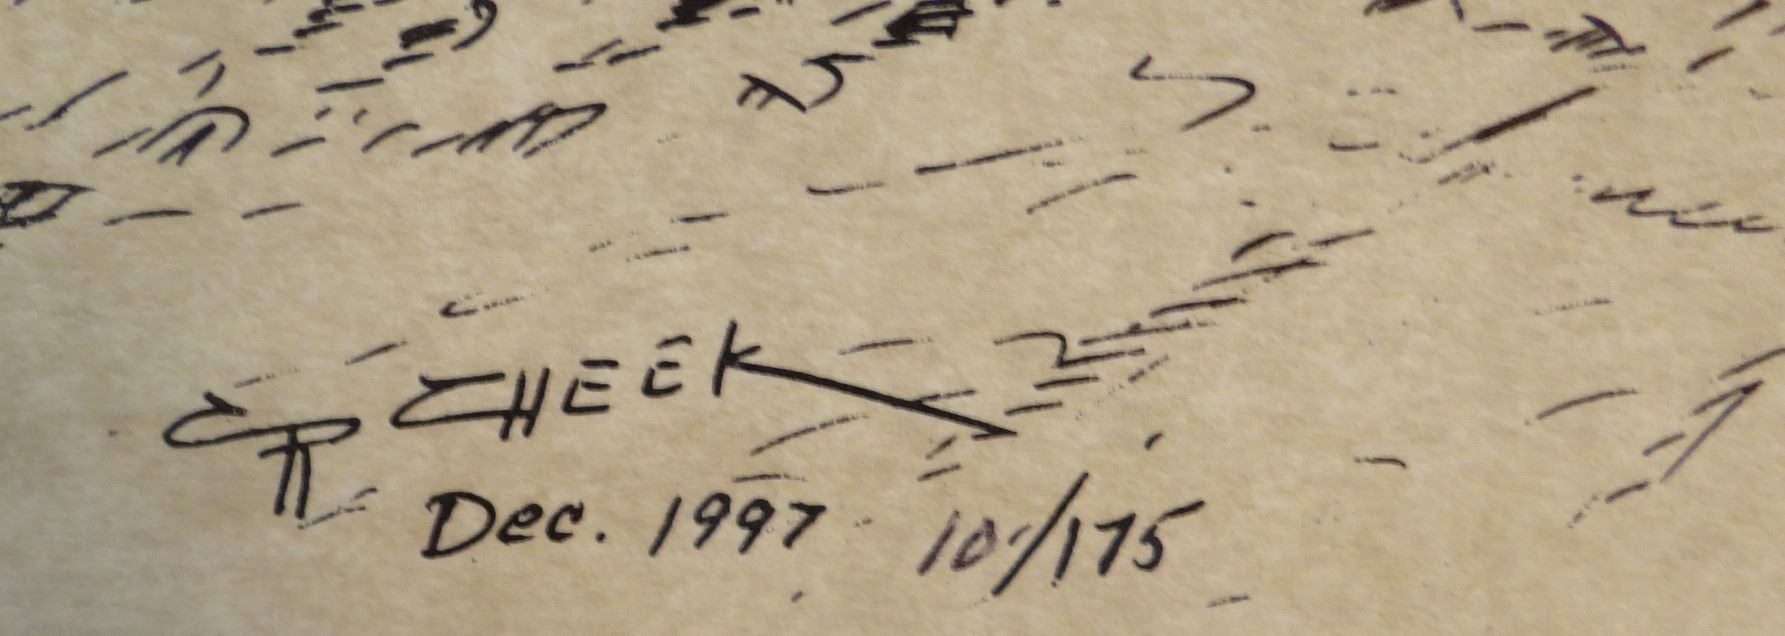 CHEEK
Dec. 1997 10/175